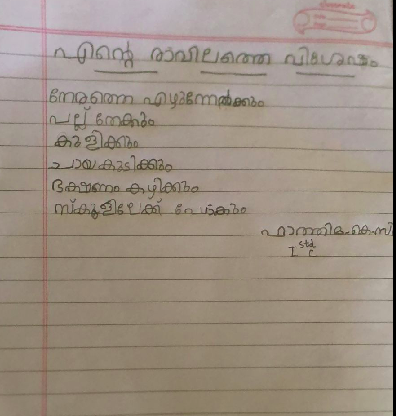 എന്റെ രാവിലത്തെ വിശേഷം
നേരത്തെ എഴുന്നേൽക്കും
പല്ല് തേക്കും
കുളിക്കും
ചായകുടിക്കും
ഭക്ഷണം കഴിക്കും
സ്കൂളിലേക്ക് പോകും
ഫാത്തിമ കെ.സി
I std C